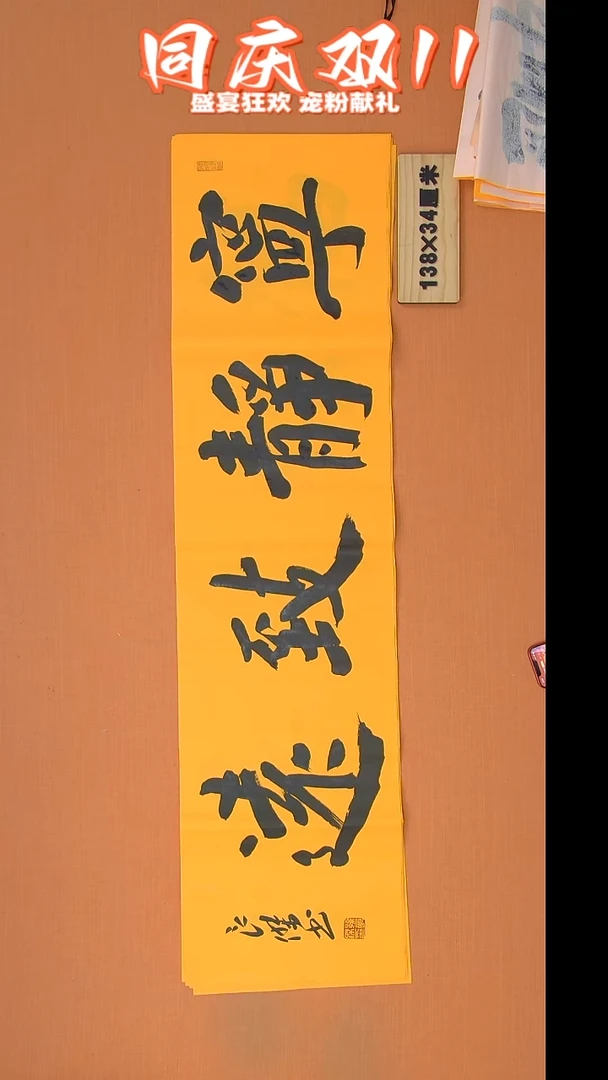 同庆双11
盛宴狂欢 宠粉献礼
138×34厘米
寧靜致遠